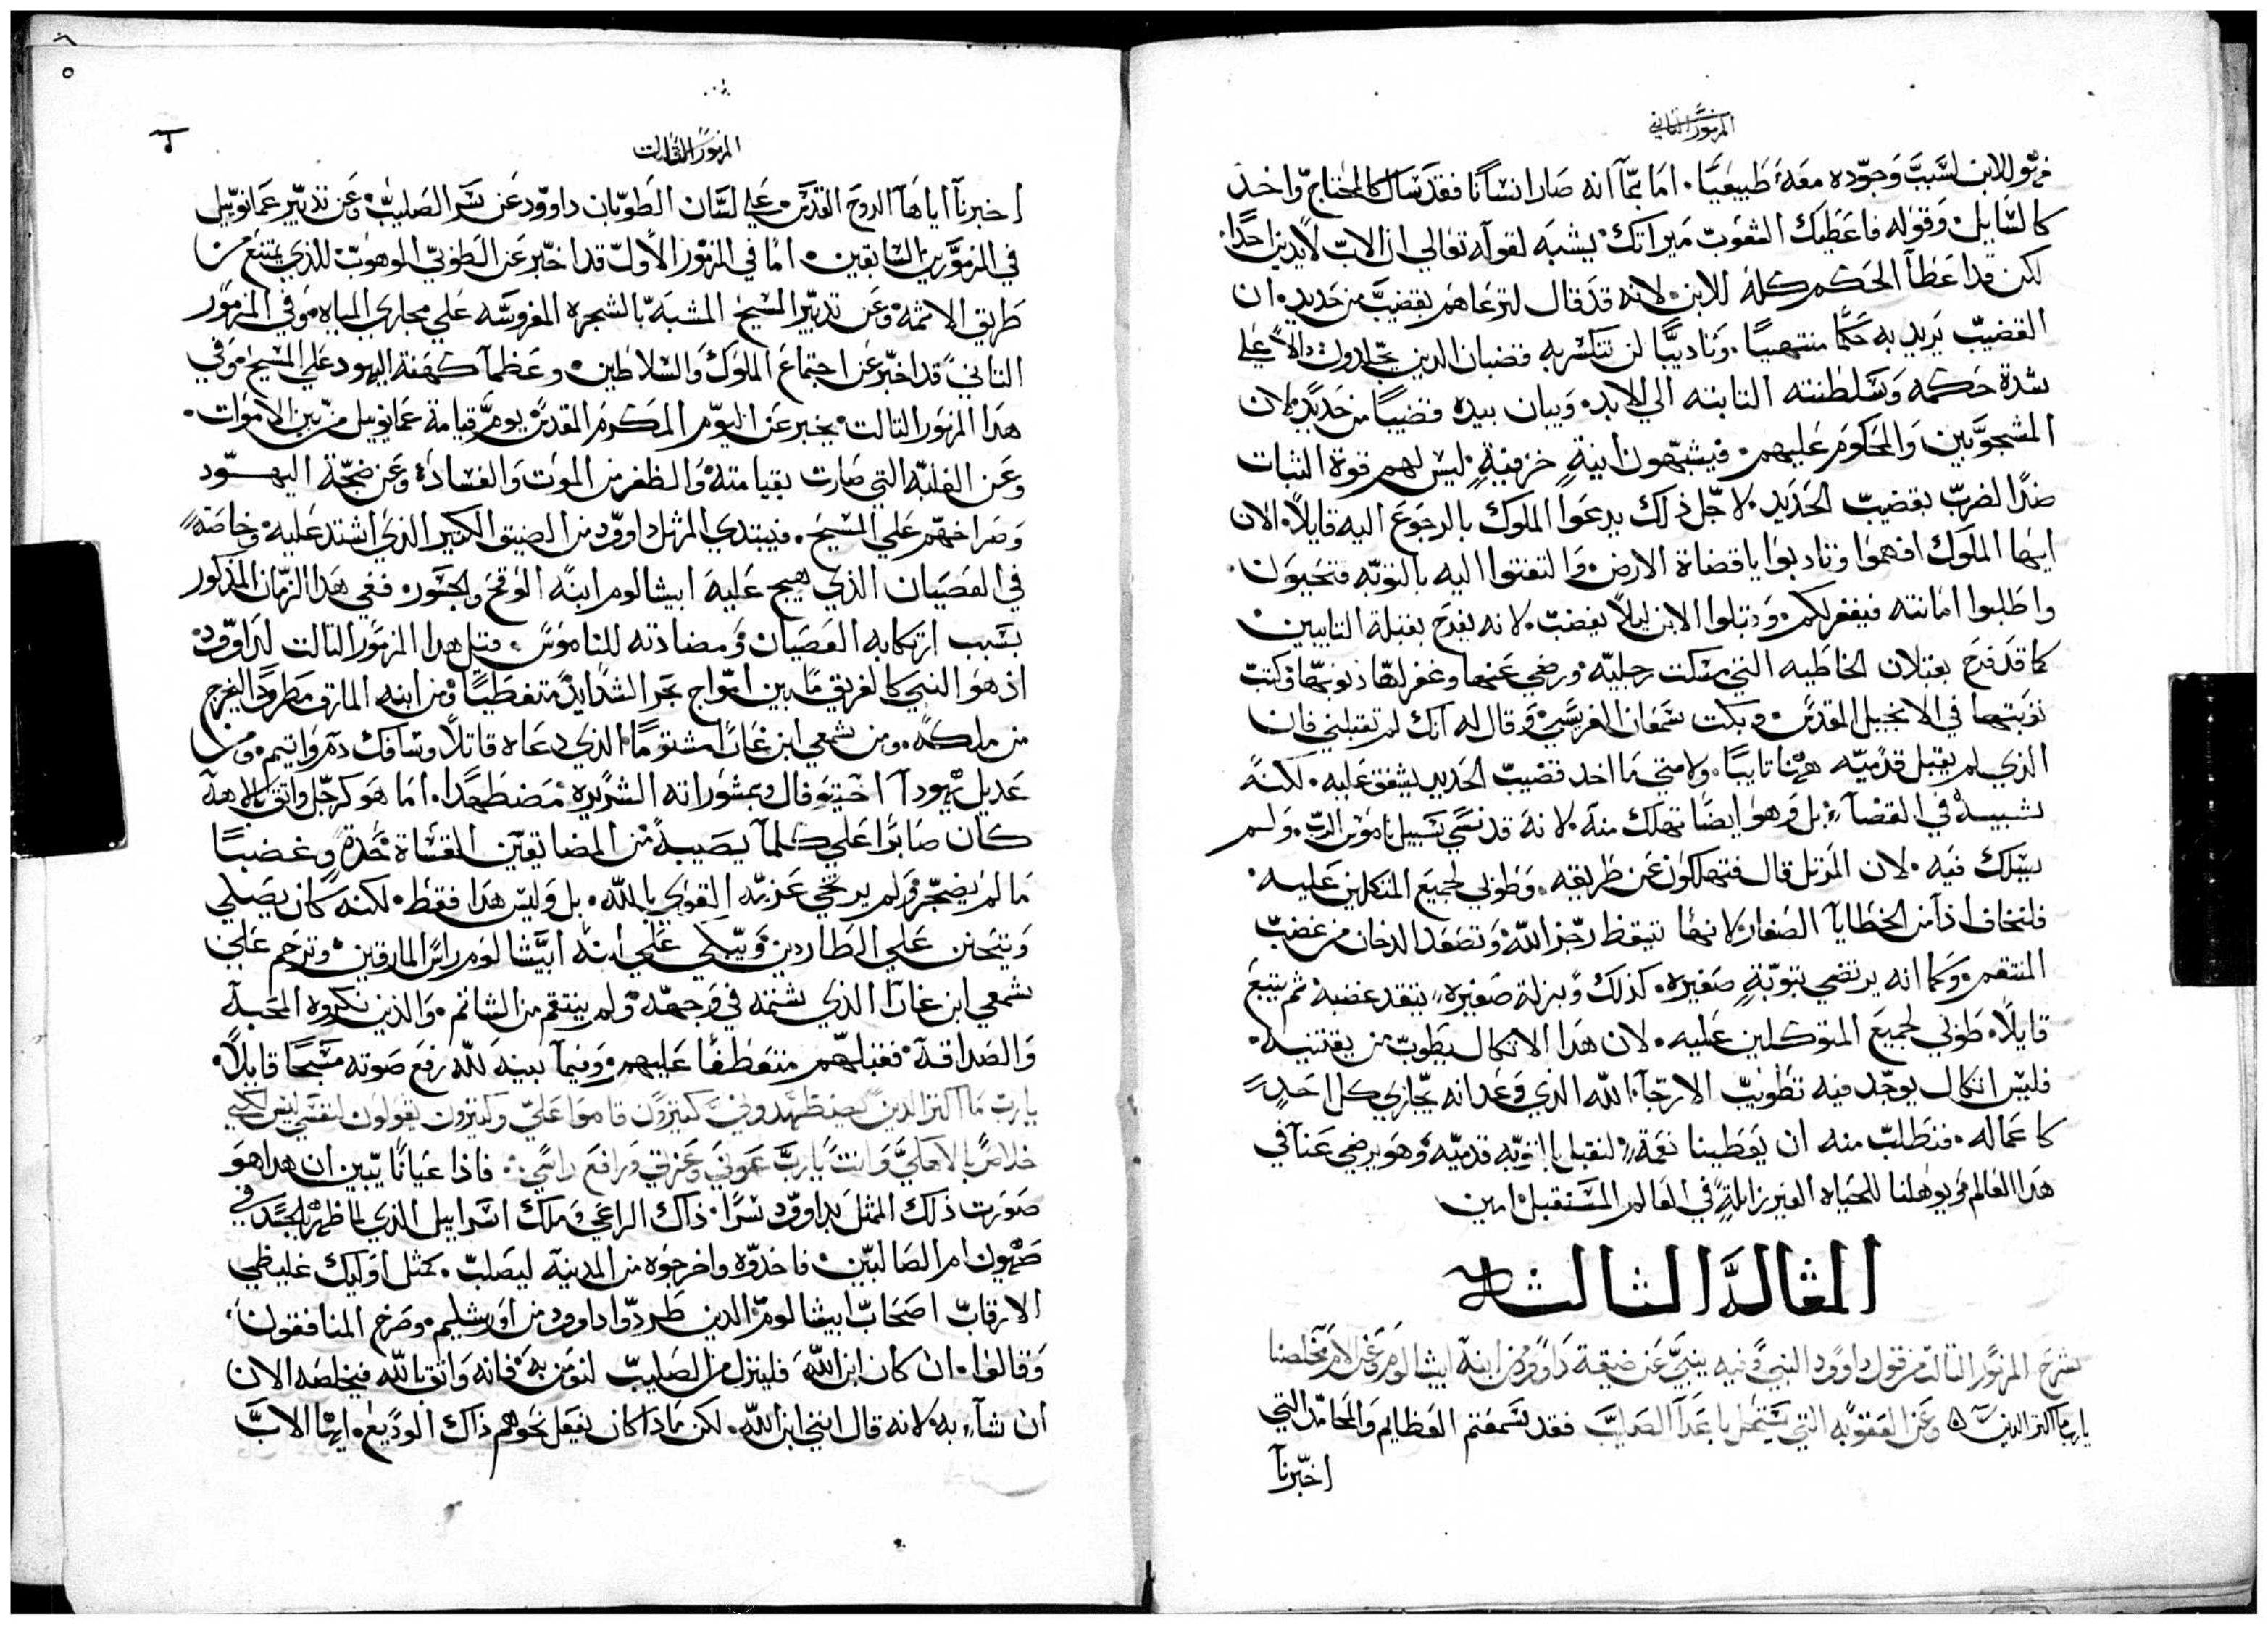 المزمور الثاني
فهو للابن لسبب وجوده معه طبيعيا. اما بما انه صار انسانا فقد سال كالمحتاج واخد
كالسايل. وقوله فاعطيك الشعوب ميراتك. يشبه لقوله تعالي ان الاب لا يدين احدا.
لكن قد اعطا الحكم كله للابن. لانه قد قال لترعاهم بقضيب من حديد. ان
القضيب يريد به حكما منتهيا. وتاديبا لن تنكسر به قضبان الدين يجلدون. دالا علي
شدة حكمه وسلطنته التابته الي الابد. ويبان بيده قضيبا من حديد. لان
المشجوبين والمحكوم عليهم. فيشبهون انية خزفية. ليس لهم قوة الثبات
ضد الضرب بقضيب الحديد. لاجل ذلك يدعوا الملوك بالرجوع اليه قايلا. الان
ايها الملوك افهموا وتادبوا يا قضاة الارض. والتفتوا اليه بالتوبه فتحيون.
واطلبوا امانته فيغفر لكم. وقبلوا الابن ليلا يغضب. لانه يفرح بقبلة التايبين
كما قد فرح بقبلات الخاطيه التي مسكت رجليه. ورضي عنها وغفر لها ذنوبها وكتب
توبتها في الانجيل المقدس. وبكت شمعان الفريسي. وقال له انك لم تقبلني فان
الذي لم يقبل قدميه هنا تايبا. ولا متي ما اخد قضيب الحديد يشفق عليه. لكنه
شبيه في القضآء بل وهو ايضا تهلك منه. لانه قد نسي سبيل ناموس الرب. ولم
يسلك فيه. لان المرتل قال فتهلكون عن طريقه. وطوبي لجميع المتكلين عليه.
فلنخاف اذا من الخطايا الصغار لانها تيقظ رجز الله. وتصعد الدخان من غضب
المنتقم. وكما انه يرتضي بتوبة صغيره. كذلك وبزلة صغيره يتقد غضبه. ثم يتبع
قايلا. طوبي لجميع المتوكلين عليه. لان هدا الاتكال يطوب من يقتنيه.
فليس اتكال يوجد فيه تطويب الا رجآء الله الذي وعد انه يجازي كل احد
كاعماله. فنطلب منه ان يعطينا نعمة لنقبل بالتوبه قدميه. وهو يرضي عنا في
هدا العالم. ويوهلنا للحياه الغير زايلة في العالم المستقبل امين
المقالة الثالثه
شرح المزمور التالت من قول داوود النبي. فيه ينبي عن ضيقة داوود من ابنه ابيشالوم وعن الام مخلصنا
يا رب ما اكتر الدين وعن العقوبه التي يستحل باعدآ الصليب فقد سمعتم العظايم والمحامد التي
اخبرنا
المزمور الثالت
اخبرنا اياها الروح القدس علي لسان الطوبان داوود عن سر الصليب. وعن تدبير عمانوييل
في المزمورين السابقين. اما في المزمور الاول قد اخبر عن الطوبي الموهوب للذي يمتنع من
طريق الاثمه. وعن تدبير المسيح المشبه بالشجره المغروسه علي مجاري المياه. وفي المزمور
التاني قد اخبر عن اجتماع الملوك والسلاطين. وعظمآ كهنة اليهود علي المسيح. وفي
هدا المزمور التالت يخبر عن اليوم المكرم المقدس يوم قيامة عمانوييل من بين الاموات.
وعن الغلبه التي صارت بقيامته. والظفر من الموت والفساد. وعن ضجة اليهود
وصراخهم علي المسيح. فيبتدي المرتل داوود من الضيق الكتير الذي اشتد عليه. وخاصة
في العصيان الذي هيج عليه ابيشالوم ابنه الوقح والجسور. ففي هدا الزمان المذكور
بسبب ارتكابه العصيان ومضادته للناموس. قيل هدا المزمور التالت لداوود.
اذ هو النبي كالغريق ما بين امواج بحر الشدايد متغطيا. ومن ابنه المارق مطرودا. الخرج
من ملكه. ومن شمعي ابن غارا مشتوما. الذي دعاه قاتلا وسافك دم واتيم. ومن
عديل يهودا اخيتوفال وبمشوراته الشريره مضطهدا. اما هو كرجل واتق بالاهه
كان صابرا علي كلما يصيبه من المضايقين القساة حدة وغضبا
ما لم يضجر ولم يرتخي عزمه القوي بالله. بل وليس هدا فقط. لكنه كان يصلي
ويتحنن علي الطاردين. ويبكي علي ابنه ابيشالوم راس المارقين. وترحم علي
شمعي ابن غارا الذي شتمه في وجهه. ولم ينتقم من الشاتم. والذين نكروه المحبه
والصداقه. فقبلهم متعطفا عليهم. وفيما بينه لله رفع صوته مسبحا قايلا.
يا رب ما اكتر الدين يضطهدوني كتيرون قاموا علي وكتيرون يقولون لنفسي ليس لكي
خلاص بالاهك وانت يا رب عوني وعزي ورافع راسي. فاذا عيانا يبين ان هدا هو
صورت ذلك المثل بداوود سرا. ذاك الراعي وملك اسراييل الذي لما ظهر بالجسد في
صهيون ام الصالبين. فاخدوه واخرجوه من المدينه ليصلب. كمثل اوليك غليظي
الارقاب اصحاب ابيشالوم الدين طردوا داوود من اورشليم. وصرخ المنافقون
وقالوا. ان كان ابن الله فلينزل من الصليب لنومن به. فانه واتق بالله فيخلصه الان
ان شآء به. لانه قال انني ابن الله. لكن مادا كان يفعل نحوهم ذاك الوديع. ايها الاب